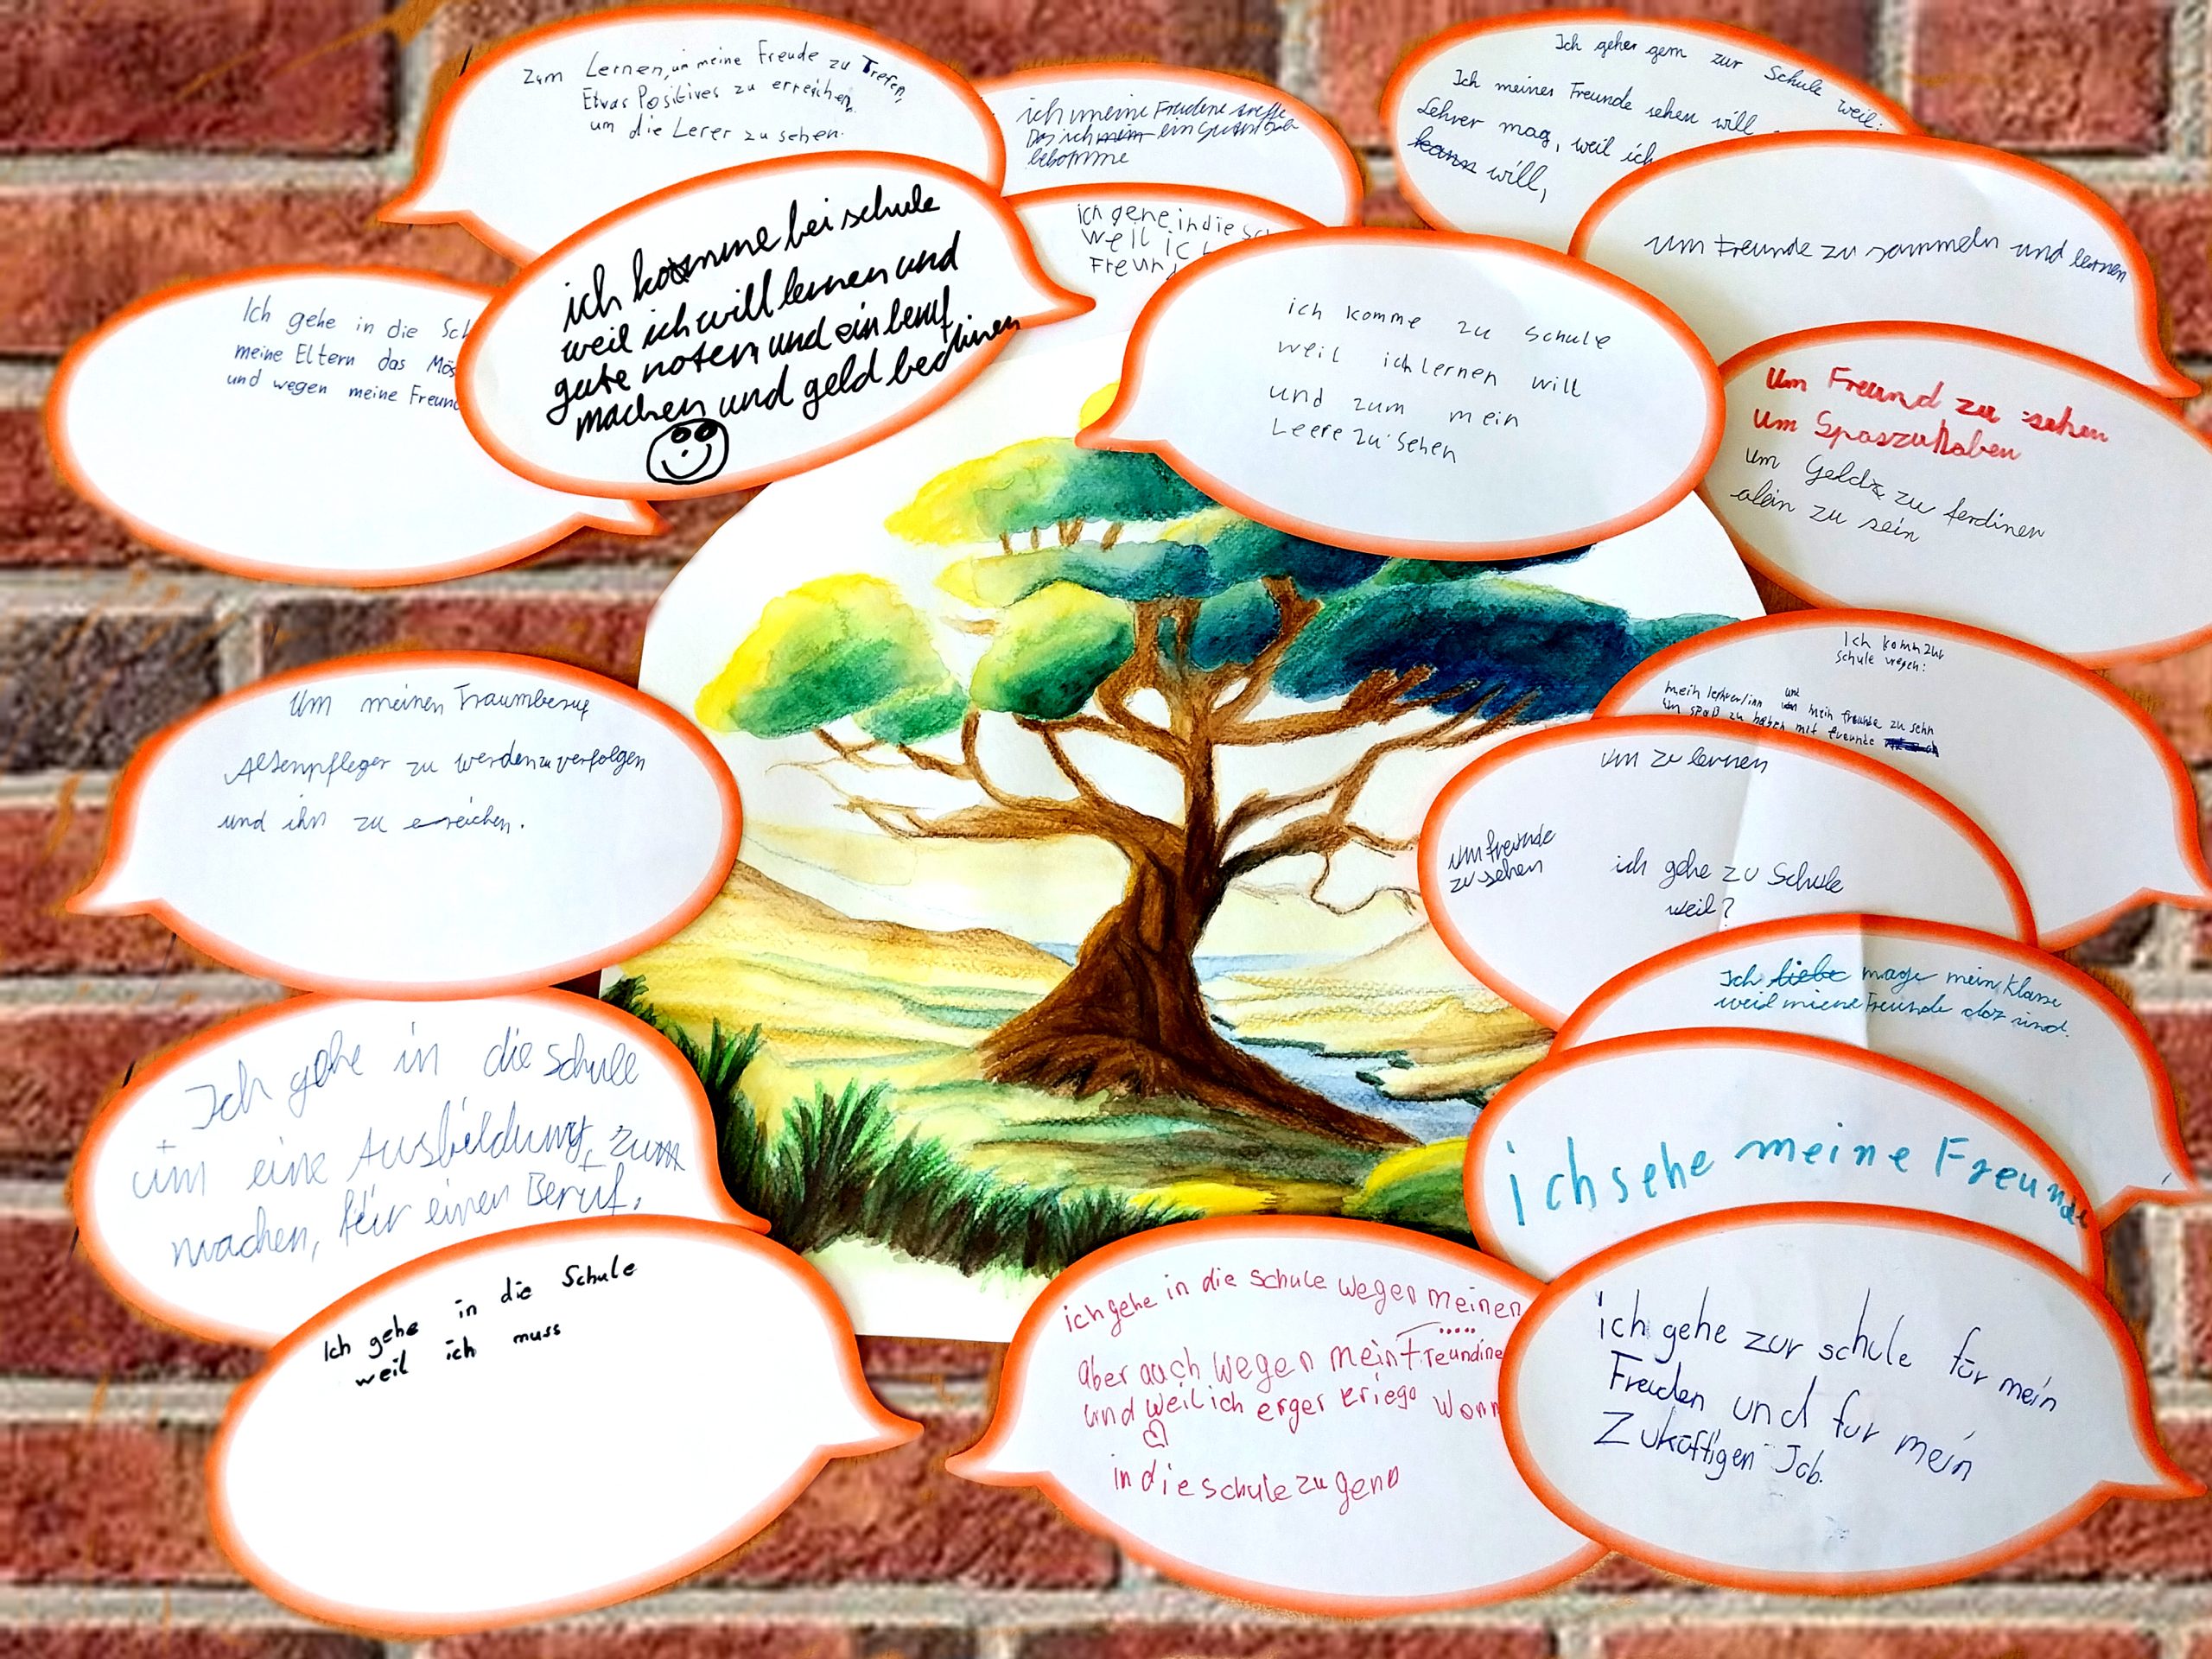 Zum Lernen, um meine Freude zu Trefen,
Etwas Positives zu erreichen,
um die Lerer zu sehen.
ich meine Freudene treffe
Das ich mein ein guten
bekomme
Ich gehe gern zur Schule weil:
Ich meines Freunde sehen will
Lehrer mag, weil ich
kann will,
um Freunde zu sammeln und lernen
ich gehe in die sc
weil ic
Freun
ich komme bei schule
weil ich will lernen und
gute noten und ein beruf
machen und geld bedhinen
Ich gehe in die Sch
meine Eltern das Mös
und wegen meine Freund
ich komme zu schule
weil ich lernen will
und zum mein
Leere zu sehen
Um Freund zu sehen
Um Spaszuhaben
um Geld zu ferdinen
alein zu sein
Ich komm zur
schule wegen:
mein lehrer/inn und mein freunde zu sehn
um spaß zu haben mit freunde
um zu lernen
um freunde
zu sehen
ich gehe zu Schule
weil?
Um meinen Traumberuf
Altenpfleger zu werden zu verfolgen
und ihn zu erreichen.
Ich liebe mage mein Klasse
weil miene Freunde daz sind.
Ich gehe in die schule
um eine Ausbildung, zum
machen, für einen Beruf.
ich sehe meine Freunde
Ich gehe in die Schule
weil ich muss
ich gehe in die schule wegen meinen
aber auch wegen mein Freundine
und weil ich erger kriege wonn
in die schule zu geno
ich gehe zur schule für mein
Freuden und fur mein
Zukuftigen Job.